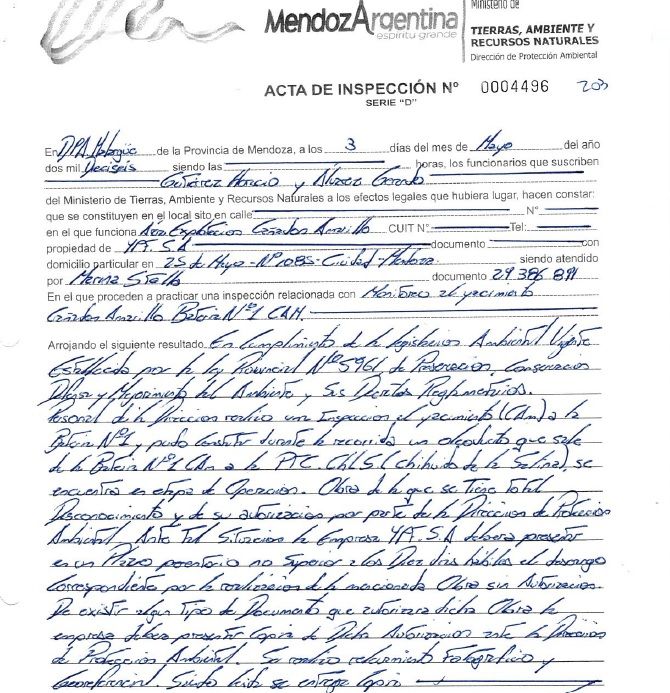 MendozArgentina
espíritu grande
Ministerio de
TIERRAS, AMBIENTE Y
RECURSOS NATURALES
Dirección de Protección Ambiental
ACTA DE INSPECCIÓN Nº 0004496 203
SERIE "D"
En DPA Malargüe de la Provincia de Mendoza, a los 3 días del mes de Mayo del año
dos mil Dieciseis siendo las horas, los funcionarios que suscriben
Gutiérrez Horacio y Álvarez Gerardo
del Ministerio de Tierras, Ambiente y Recursos Naturales a los efectos legales que hubiera lugar, hacen constar:
que se constituyen en el local sito en calle Nº
en el que funciona Área Explotación Cañadón Amarillo CUIT Nº: Tel:
propiedad de YPF. S.A documento con
domicilio particular en 25 de Mayo - Nº 1085 - Ciudad - Mendoza. siendo atendido
por Marina documento 29.386.891
En el que proceden a practicar una inspección relacionada con Monitoreo al yacimiento
Cañadón Amarillo Batería Nº 1 CAM.
Arrojando el siguiente resultado. En Cumplimiento de la legislación Ambiental Vigente
Establecida por la Ley Provincial Nº 5961 de Preservación, Conservación
Defensa y Mejoramiento del Ambiente y Sus Decretos Reglamentarios.
Personal de la Dirección realizo una Inspección al yacimiento (CAm) a la
Batería Nº 1 y pudo Constatar durante la recorrida un oleoducto que sale
de la Batería Nº 1 CAm a la PTC. Ch.L.S. (Chihuido de la Salina), se
encuentra en etapa de Operación. Obra de la que se Tiene Total
Desconocimiento y de su autorización por parte de la Dirección de Protección
Ambiental, Ante Tal Situación la Empresa YPF. S.A deberá presentar
en un Plazo perentorio no Superior a los Diez días hábiles el descargo
Correspondiente por la realización de la mencionada Obra sin Autorización.
De existir algún Tipo de Documento que autorizara dicha Obra la
empresa deberá presentar Copia de Dicha Autorización ante la Dirección
de Protección Ambiental. Se realizo relevamiento Fotográfico y
Georeferencial. Siendo se entrega Copia